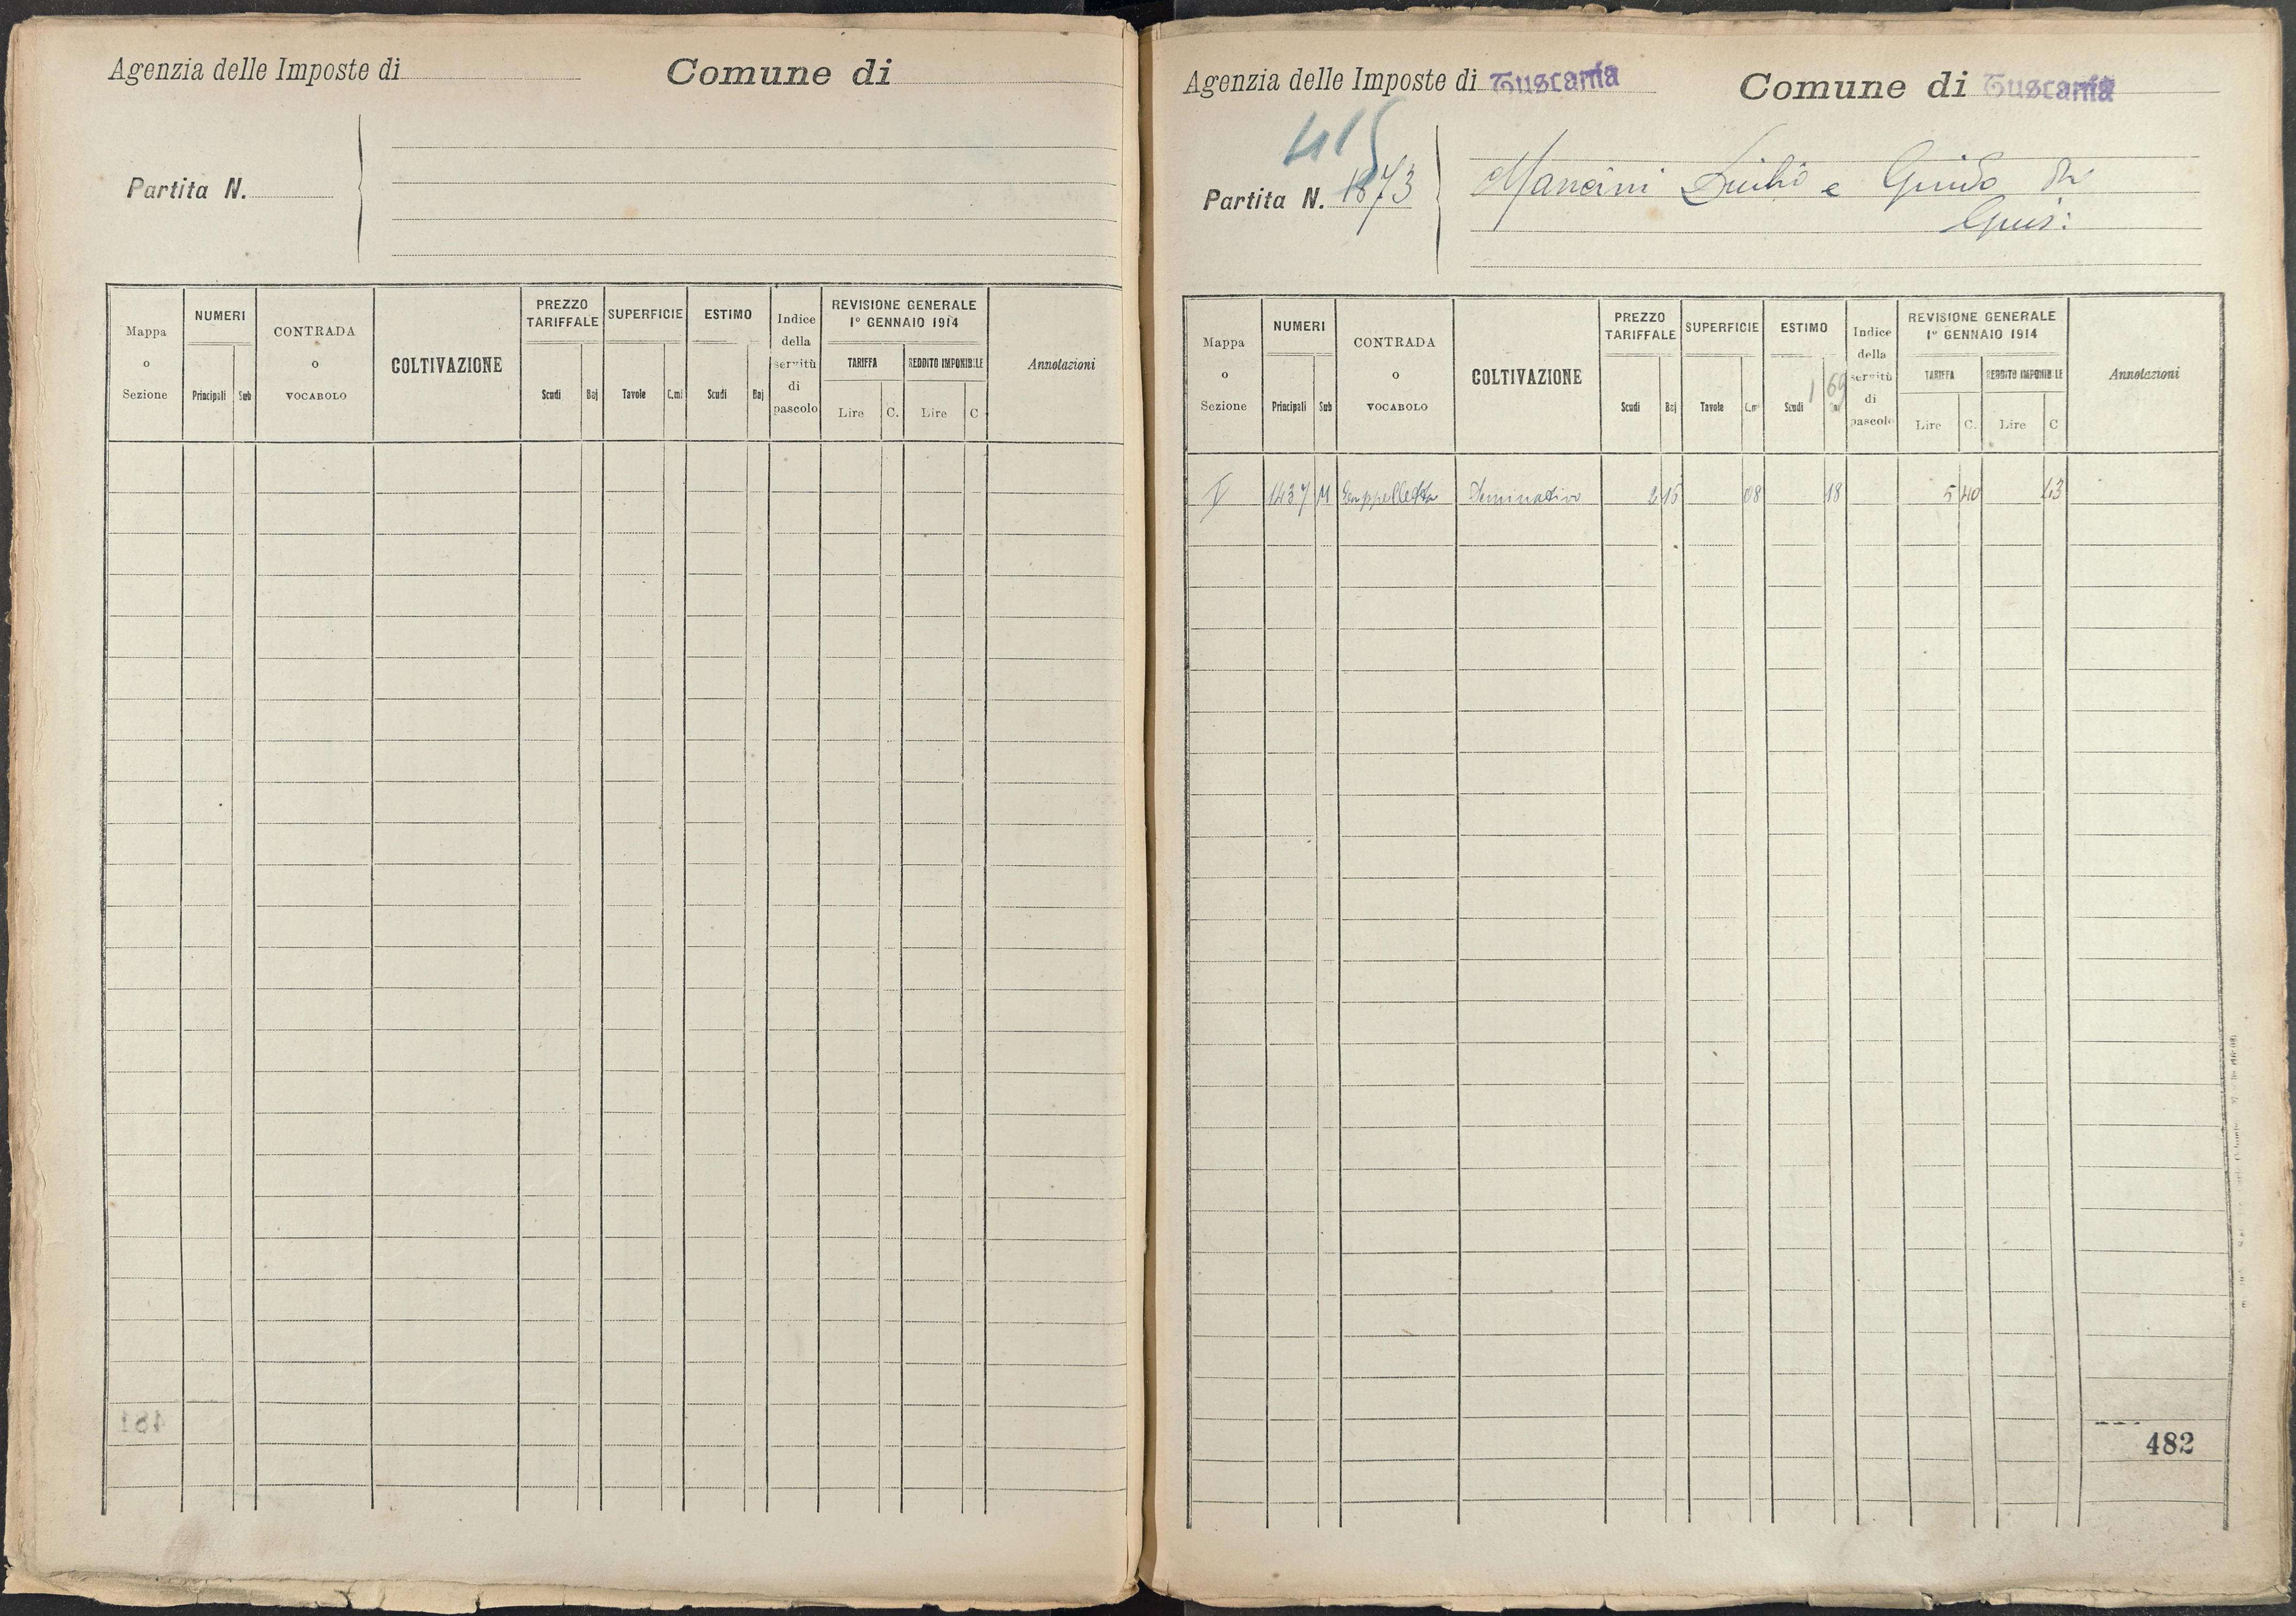 Agenzia delle Imposte di
Comune di
Partita N.
Mappa o Sezione
NUMERI
Principali Sub
CONTRADA o VOCABOLO
COLTIVAZIONE
PREZZO TARIFFALE
Scudi Baj
SUPERFICIE
Tavole C.mi
ESTIMO
Scudi Baj
Indice della servitù di pascolo
REVISIONE GENERALE
1° GENNAIO 1914
TARIFFA REDDITO IMPONIBILE
Lire C. Lire C
Annotazioni
481
Agenzia delle Imposte di Tuscania
Comune di Tuscania
415
Partita N. 1873
Mancini Duilio e Guido di
Gius:
Mappa o Sezione
NUMERI
Principali Sub
CONTRADA o VOCABOLO
COLTIVAZIONE
PREZZO TARIFFALE
Scudi Baj
SUPERFICIE
Tavole C.mi
ESTIMO
1 69
Scudi
Indice della servitù di pascolo
REVISIONE GENERALE
1° GENNAIO 1914
TARIFFA REDDITO IMPONIBILE
Lire C. Lire C
Annotazioni
V 1437 Cappelletta Seminativo 2 15 08 18 5 40 43
482